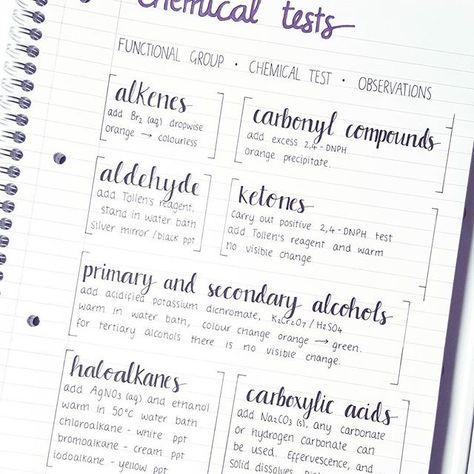 chemical tests
FUNCTIONAL GROUP · CHEMICAL TEST · OBSERVATIONS
alkenes
add Br₂ (aq) dropwise
orange → colourless
carbonyl compounds
add excess 2,4-DNPH
orange precipitate.
aldehyde
add Tollen's reagent.
stand in water bath
silver mirror / black ppt
ketones
carry out positive 2,4-DNPH test
add Tollen's reagent and warm
no visible change
primary and secondary alcohols
add acidified potassium dichromate, K₂Cr₂O₇ / H₂SO₄
warm in water bath, colour change orange → green.
for tertiary alcohols there is no visible change.
haloalkanes
add AgNO₃ (aq) and ethanol
warm in 50°C water bath
chloroalkane - white ppt
bromoalkane - cream ppt
iodoalkane - yellow ppt
carboxylic acids
add Na₂CO₃ (s), any carbonate
or hydrogen carbonate can
be used. Effervescence and
solid dissolves